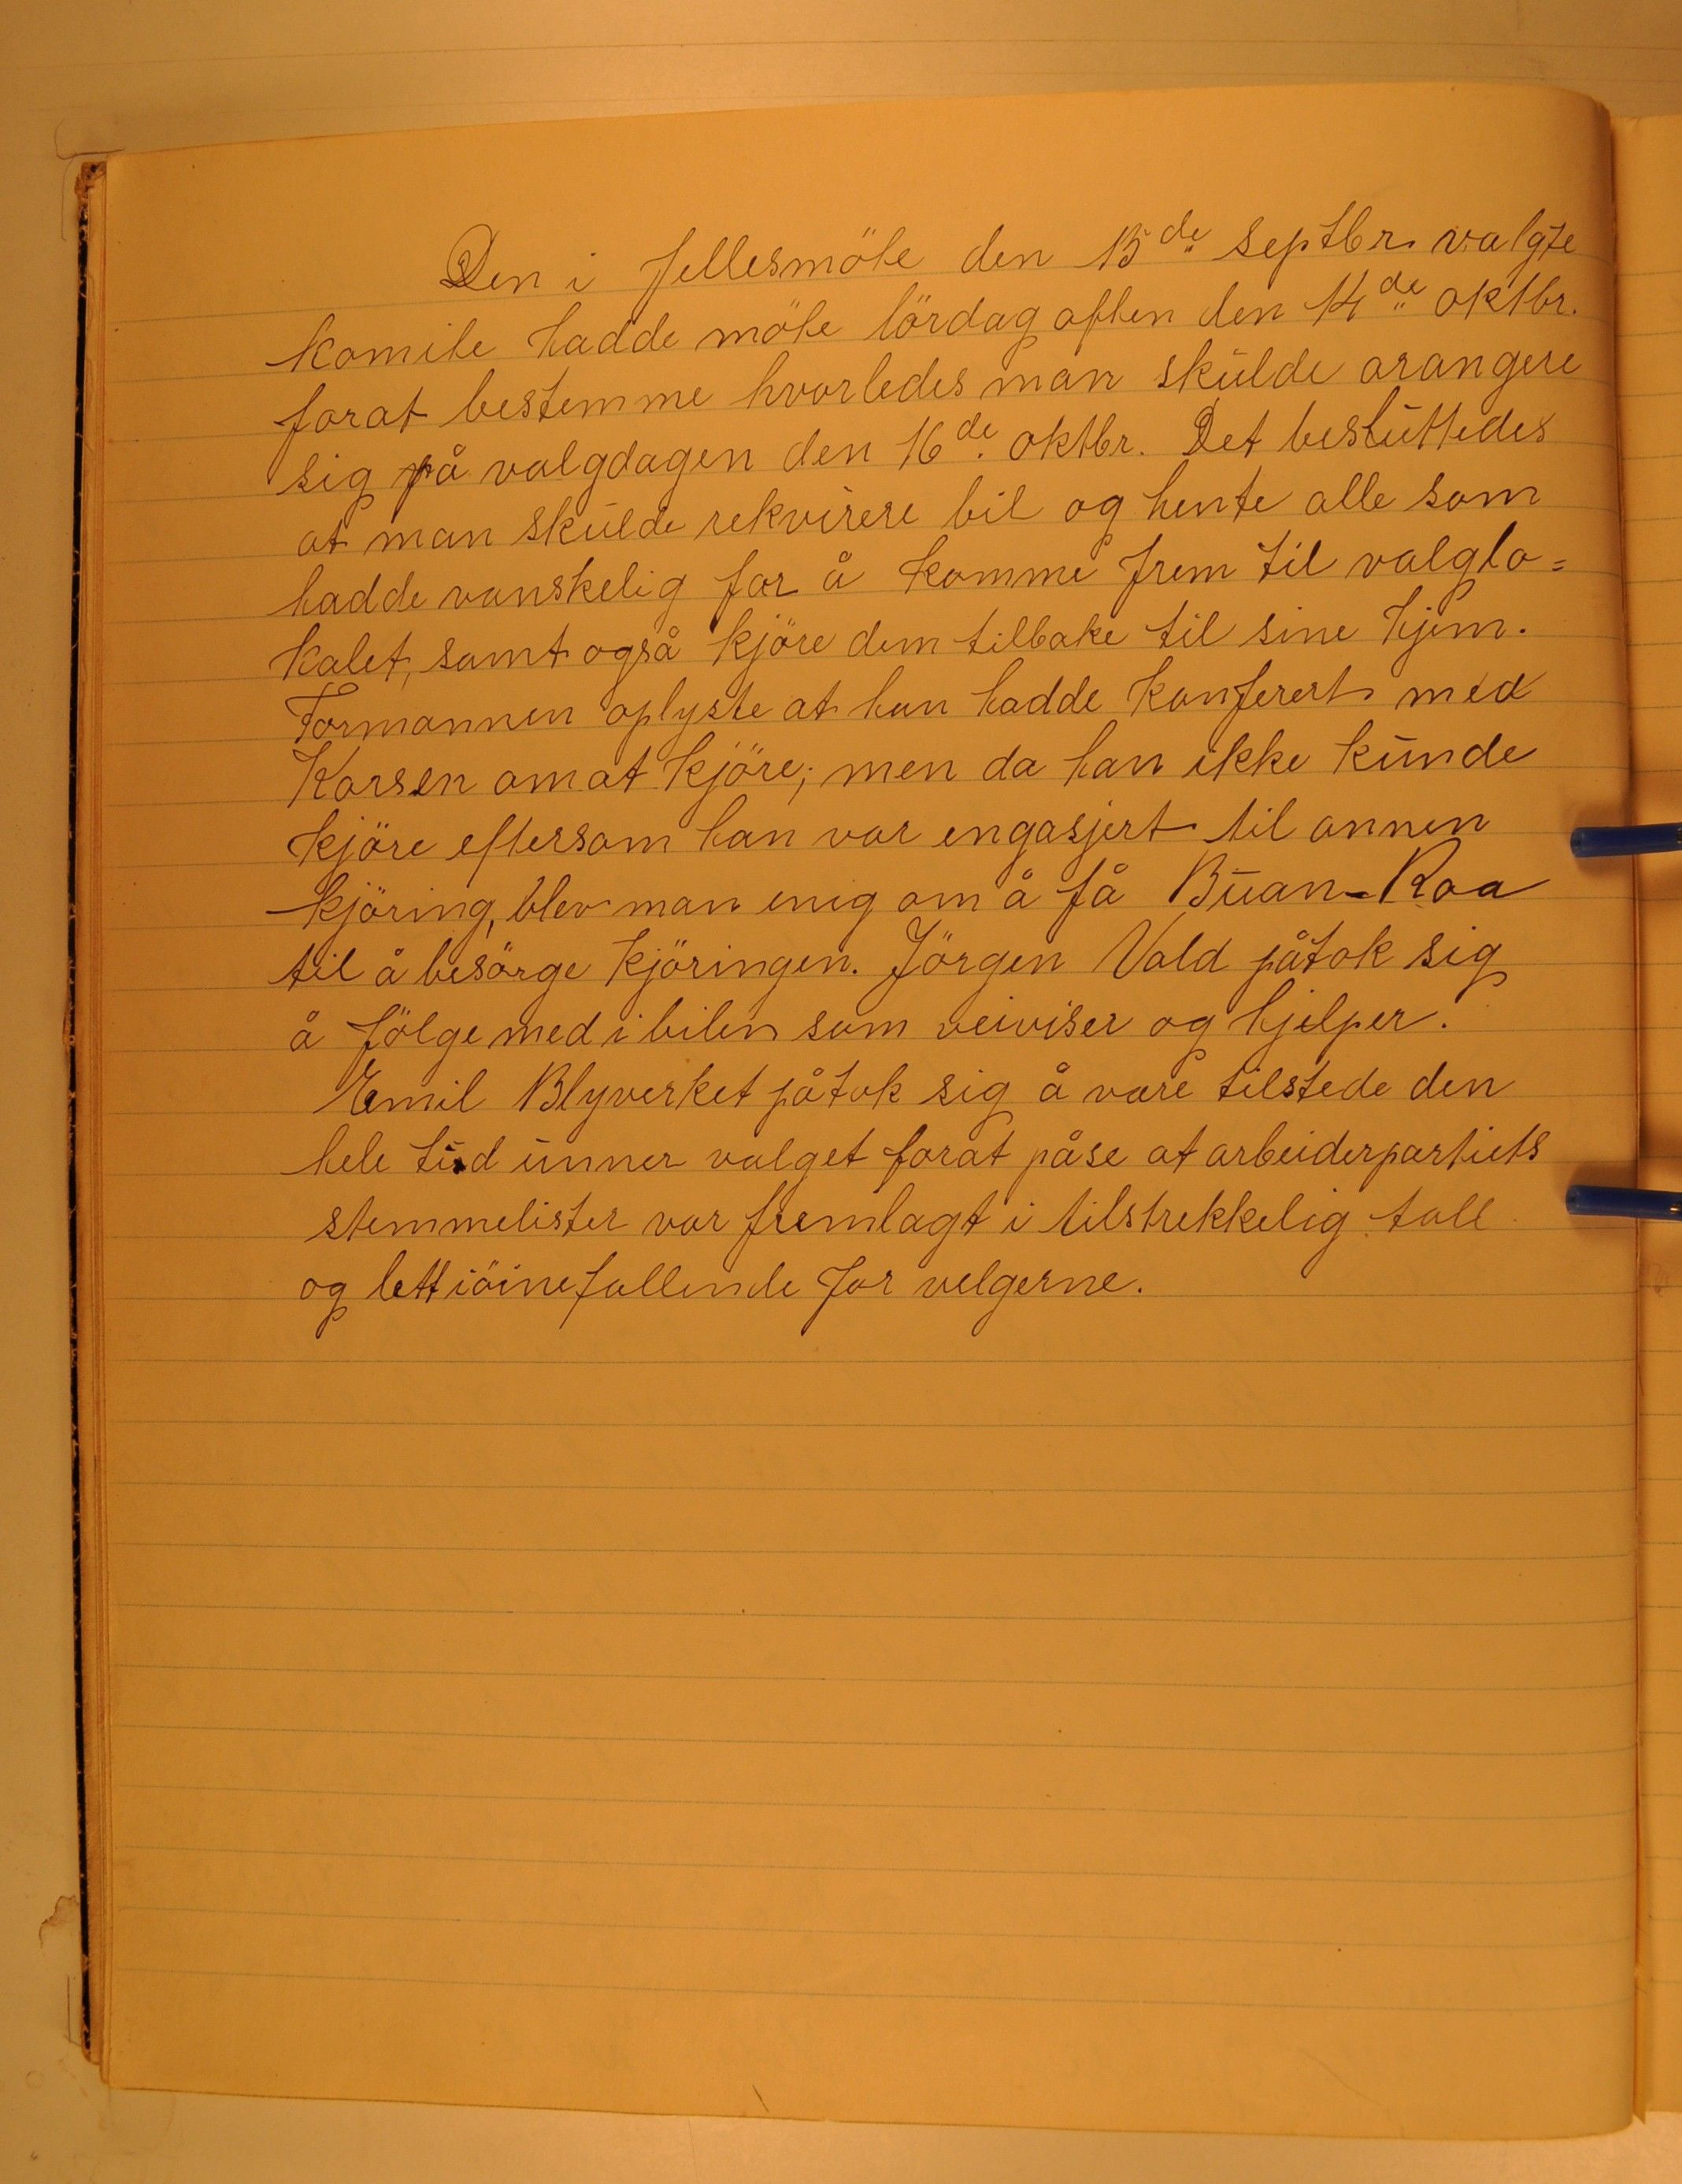 Den i fellesmöte den 15de septbr valgte
komite hadde möte lördag aften den 14de oktbr.
forat bestemme hvorledes man skulde arangere
sig på valgdagen den 16de oktbr. Det besluttedes
at man skulde rekvirere bil og hente alle som
hadde vanskelig for å komme frem til valglo=
kalet, samt også kjöre dem tilbake til sine hjem.
Formannen oplyste at han hadde konferert med
Korsen om at kjöre; men da han ikke kunde
kjöre eftersom han var engasjert til annen
kjöring, blev man enig om å få Buan-Roa
til å besörge kjöringen. Jörgen Vold påtok sig
å fölge med i bilen som veiviser og hjelper.
Emil Blyverket påtok sig å være tilstede den
hele tid unner valget forat påse at arbeiderpartiets
stemmelister var fremlagt i tilstrekkelig tall
og lett iöinefallende for velgerne.